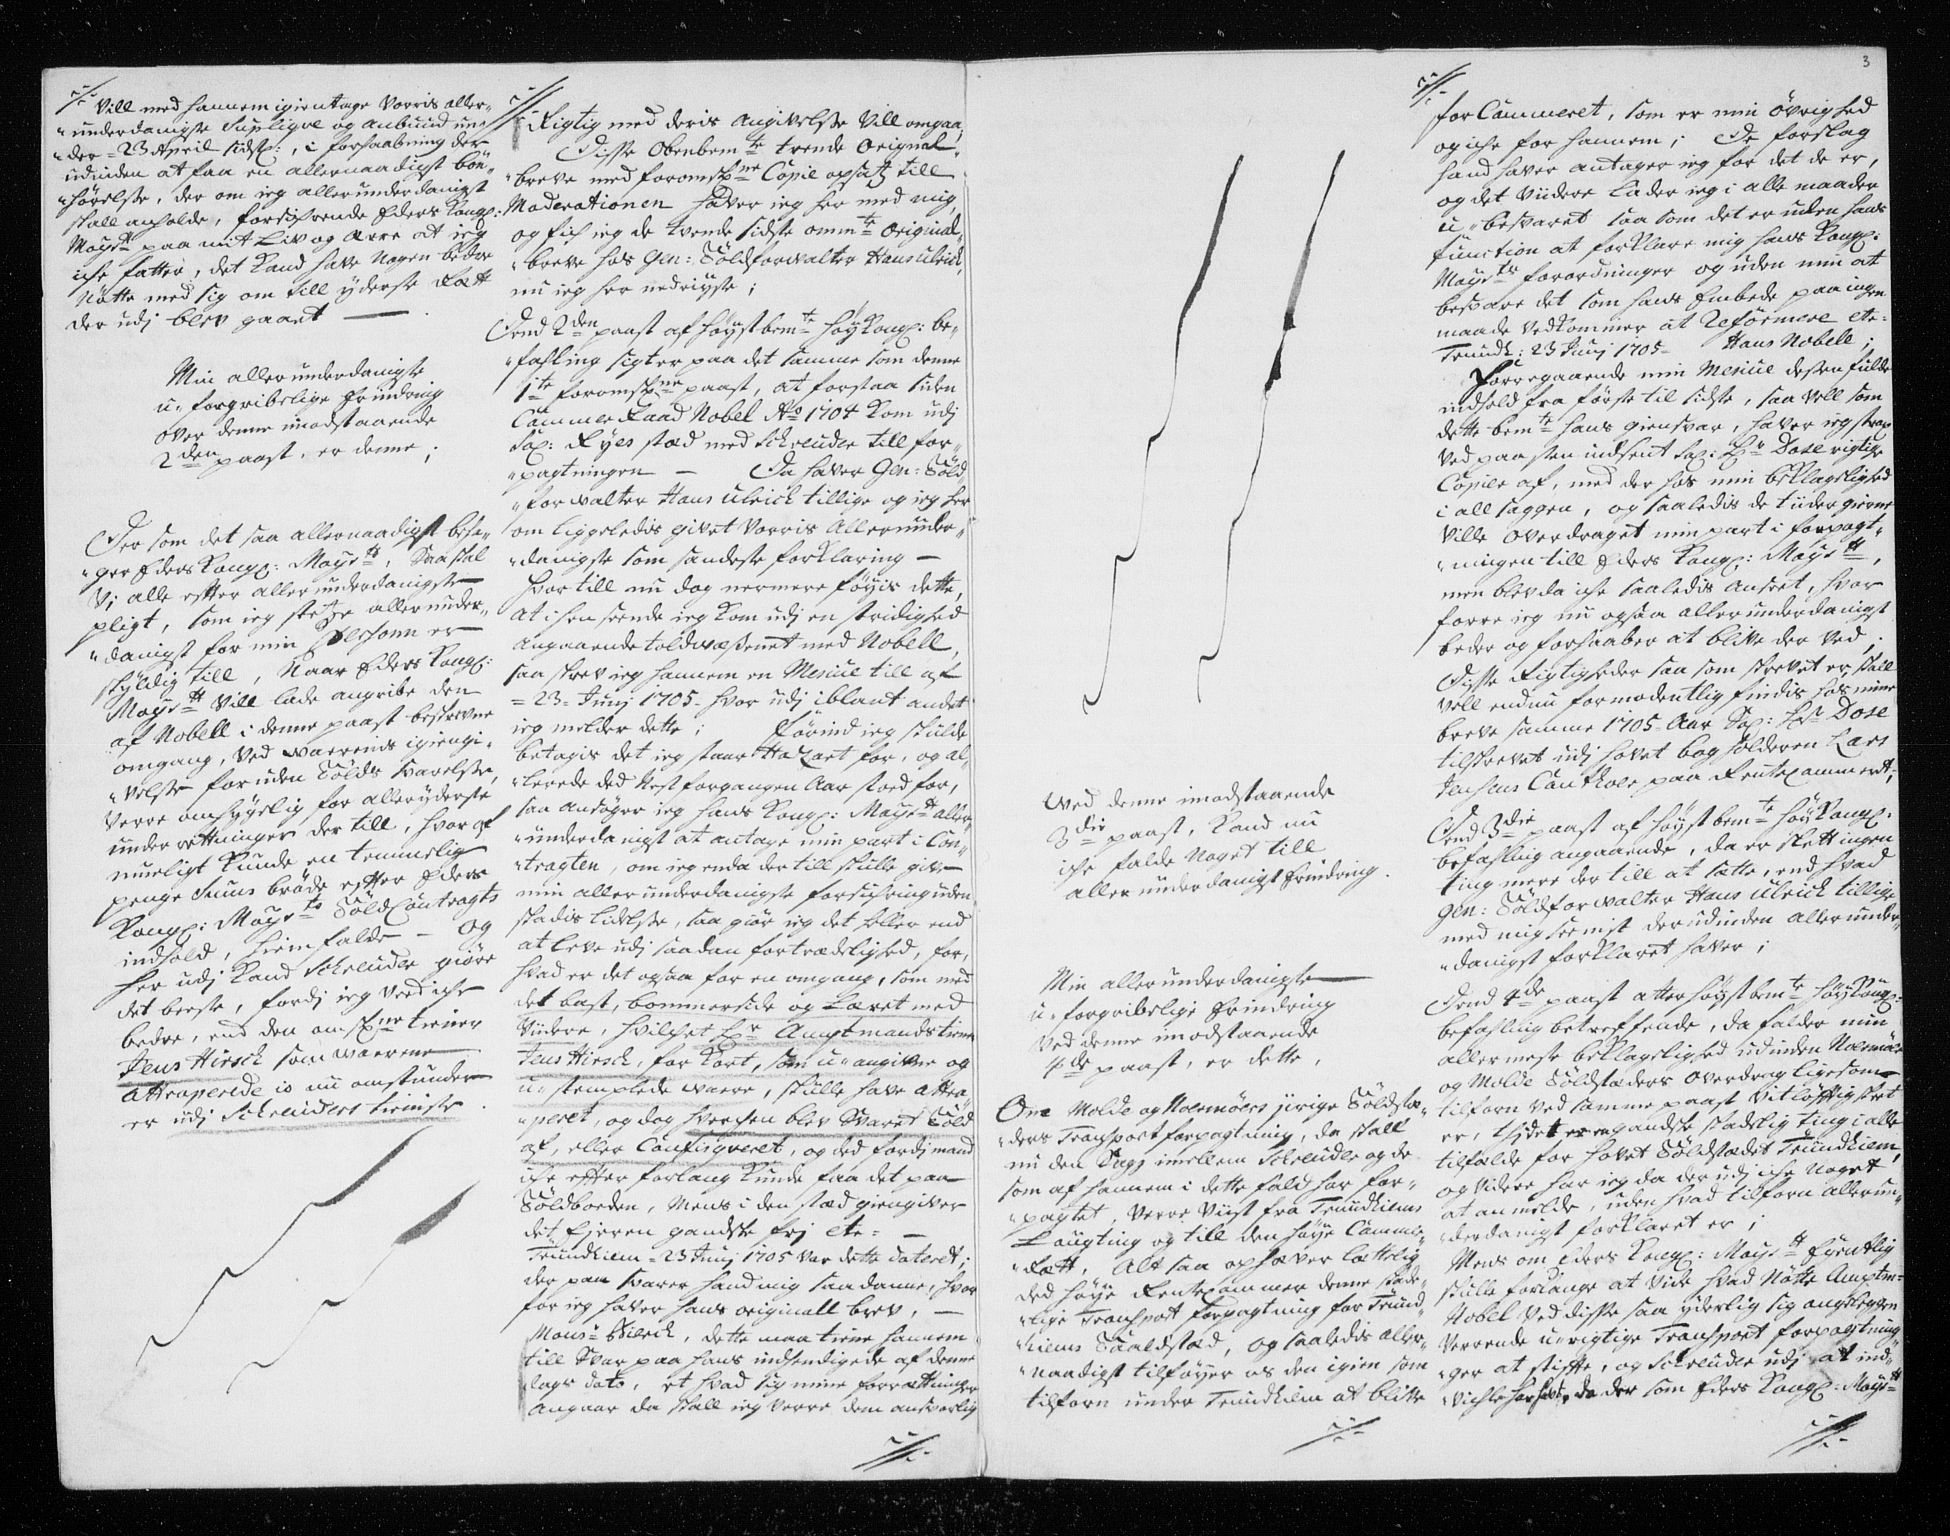 Vill med hannem igientage Vorris aller-
underdanigste Suplique og anbuud un-
der = 23 April sidst:, i forhaabning der
udinden at faa en allernaadigst bön-
hörelsse, der om jeg allerunderdanigst
skall anholde, forsichrende Eders Kongl:
Mayst: paa mit Liv og ære at jeg
iche fatter, det Kand have Nogen bedre
Nötte med sig om till yderste Rætt
der udj blev gaaet —
Min allerunderdanigste
u-forgribelige Erindring
over denne imodstaaende
2den paast, er denne;
Der som det saa allernaadigst beha-
ger Eders Kongl: Mayst:, Saa skal
Vj alle effter allerunderdanigste
pligt, som jeg stetze allerunder-
danigst for min Persohn er
skyldig till, Naar Eders Kongl:
Mayst: Vill lade angribe den
af Nobell i denne paast beskrevne
omgang, Ved waerenis igiengi-
velsse foruden Tolds svarelsse,
Verre omhyggelig for alleryderste
underrettninger der till, hvor af
mueligt Kunde en temmelig
penge Summa brøde effter Eders
Kongl: Mayst: Told Contragts
indhold, hiemfalde — og
her udj Kand Schreuder giøre
det beeste, fordj jeg Ved iche
bedre, end den omskrne tiener
Jens Hirsch som waerene
attraperede is nu omstunder
er udj Schreuders tieniste.
Rigtig med deris Angivelsse Vill omgaa;
Disse Obenbemte trende Original-
breve med foromskne Copie opsatz till
Moderationen haver jeg her med mig,
og fich jeg de tvende sidste ommte Original-
breve hos Gen: Toldforwalter Hans Ulrich,
nu jeg her nedreyste;
Dend 2den paast af høystbemte høy Kongl: be-
fahling sigter paa det samme som denne
1te foromskne paast, at forstaa siden
Cammer Raad Nobel Ao 1704 Kom udj
Sal: Ryes stæd med Schreuder till for-
pagtningen — Da haver Gen: Told
forwalter Hans Ulrich tillige og jeg her
om liggeledis givet Vorris Allerunder-
danigste som sandeste forklaring —
Hvor till nu dog nermere föyis dette,
at i henseende jeg Kom udj en stridighed
angaaende toldwæssenet med Nobell,
saa skrev jeg hannem en Mesive till af
= 23 = Junj 1705 - hvor udj iblant andet
jeg melder dette; Førind jeg skulde
betagis det jeg staar Hazart for, og al-
lerede ded Nest forgangen Aar stoed for,
saa ansöger jeg hans Kongl: Mayst: aller-
underdanigst at antage min part i Con-
tragten, om jeg enda der till skulle give
min allerunderdanigste forsichring uden
skadis lidelsse, saa giør jeg det heller end
at leve udj saadan fortrædelighed, for,
hvad er det ogsaa for en omgang, som med
det bast, bommerside og Læret med
Viidere, hvilchet Hr Amptmands tiener
Jens Hirsch, for Kort, som u-angivne og
u-stemplede waere, skulle have attra-
peret, og dog hverchen blev Svaret Told
af, eller Confisqveret, og ded fordj mand
iche effter forlang Kunde faa det paa
Toldboeden, Mens i den stæd giengiver
det Eieren gandske frj etc: —
Trundhiem = 23 Junj 1705 var dette dateret;
der paa svarer hand mig saadanne, hvor
for jeg haver hans originall brev, —
Monsr Bilrich, dette maa tiene hannem
till Svar paa hans indsendigede af denne
dags dato, et hvad sig mine forrættninger
angaar da skall jeg Verre dem ansvarlig
Ved denne imodstaaende
3die paast, Kand nu
iche falde Noget till
allerunderdanigst Erindring.
Min allerunderdanigste
u-forgribelige Erindring
Ved denne imodstaaende
4de paast, er dette,
Om Molde og Noermøers ziirige Toldstæ-
ders Transport forpagtning, da skall
nu den Sagg imellem Schreuder og de
som af hannem i dette fald har for-
pagtet, Verre Viist fra Trundhiems
Laugting og till den høye Cammer
Rætt, Alt saa ophæver lættelig
ded høye Rentecammer denne skade-
lige Transport forpagtning for Trund-
hiems Taaldstæd, og saaledis aller-
naadigst tilføyer os den igien som
tilforn under Trundhiem at blive
3
for Cammeret, som er min övrighed
og iche for hannem; De forslag
hand haver antager jeg for det de er,
og det Viidere Lader jeg i alle maader
u-besvaret saa som det er uden hans
function at forklare mig hans Kongl:
Mayst: forordninger og uden min at
besvare det som hans Embede paa ingen
maade Vedkommer at Reformere etc:
Trundh: 23 Junj 1705 - Hans Nobell;
Forregaaende min Mesive dessen fulde
indhold fra förste til sidste, saa Vell som
dette bemte hans giensvar, haver jeg strax
Ved paasten indsent Sal: Hr Dose rigtige
Copier af, med der hos min beklagelighed
i all saggen, og saaledis de tiider gierne
Ville overdraget min part i forpagt-
ningen till Eders Kongl: Mayst:,
men blev da iche saaledis anseet, hvor
forre jeg nu ogsaa allerunderdanigst
beder og forhaaber at blive der Ved;
Disse Rigtigheder saa som skrevet er, skall
Vell endnu formodentlig findis hos mine
breve samme 1705 - Aar Sal: Hr Dose
tilskrevet udj hovet bogholderen Lars
Jensens Conthoir paa Rentecammeret;
Dend 3die paast af høystbemte høy Kongl:
befahling angaaende, da er slett ingen
ting mere der till at sætte, end hvad
Gen: Toldforwalter Hans Ulrich tillige
med mig her nest der udinden allerunder-
danigst forklaret haver;
Dend 4de paast atter høystbemte høy Kongl:
befahling betreffende, da falder min
allermeste beklagelighed udinden Noermøer
og Molde Toldstæders overdrag ligesom
tilforn ved samme paast Vitløfftig skret
er, thj det er en gandske skadelig ting i alle
tilfælde for hovet Toldstædet Trundhiem,
og videre har jeg da der udj iche noget
at anmelde, uden hvad tilforn allerun-
derdanigst forklaret er;
Mens om Eders Kongl: Mayst: Eyentlig
skulle forlange at vide hvad Nøtte Amptm:
Nobel Ved disse saa yderlig sig angeleggen
Verrende u-rigtige Transport forpagtnin-
ger at stiffte, og Schreuder udj at ind-
vichle har havt, da der som Eders Kongl: Mayst: